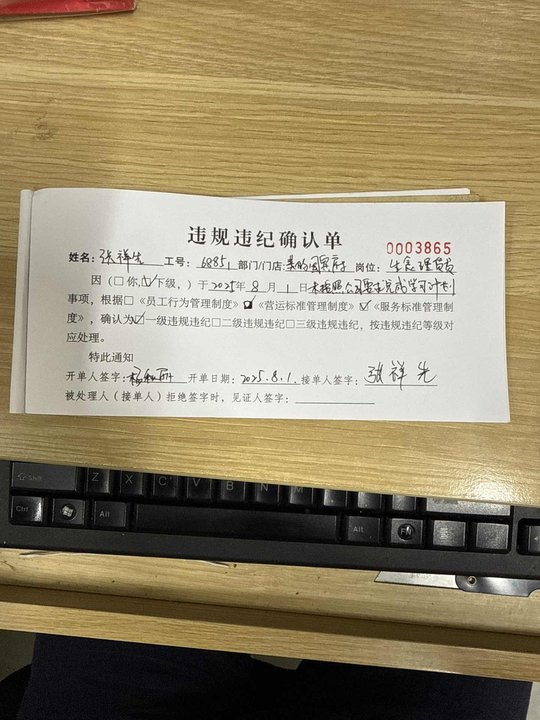 违规违纪确认单
0003865
姓名：张祥先 工号：68851 部门/门店：美的国宾府 岗位：生鲜理货员
因（□你，☑下级，）于2025年8月1日未按照公司要求完成学习计划
事项，根据□《员工行为管理制度》☑《营运标准管理制度》☑《服务标准管理制
度》，确认为☑一级违规违纪□二级违规违纪□三级违规违纪，按违规违纪等级对
应处理。
特此通知
开单人签字： 开单日期：2025.8.1. 接单人签字：张祥先
被处理人（接单人）拒绝签字时，见证人签字：
Shift Z X C V B N M
Ctrl Alt Alt FN